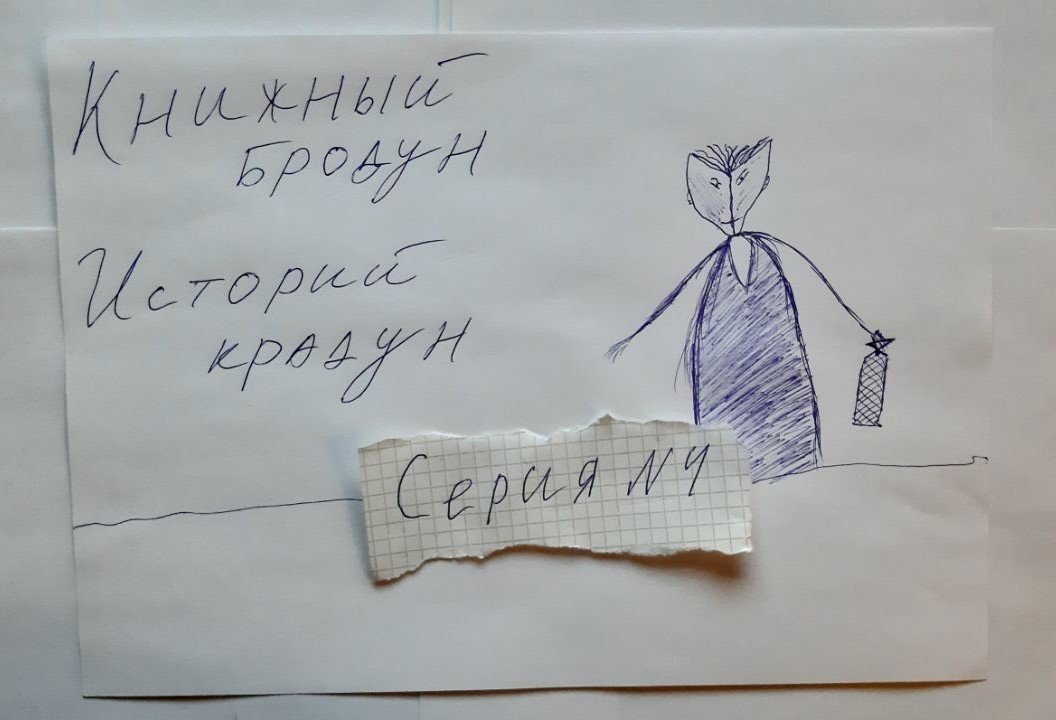 Книжный
бродун
Историй
крадун
Серия №4